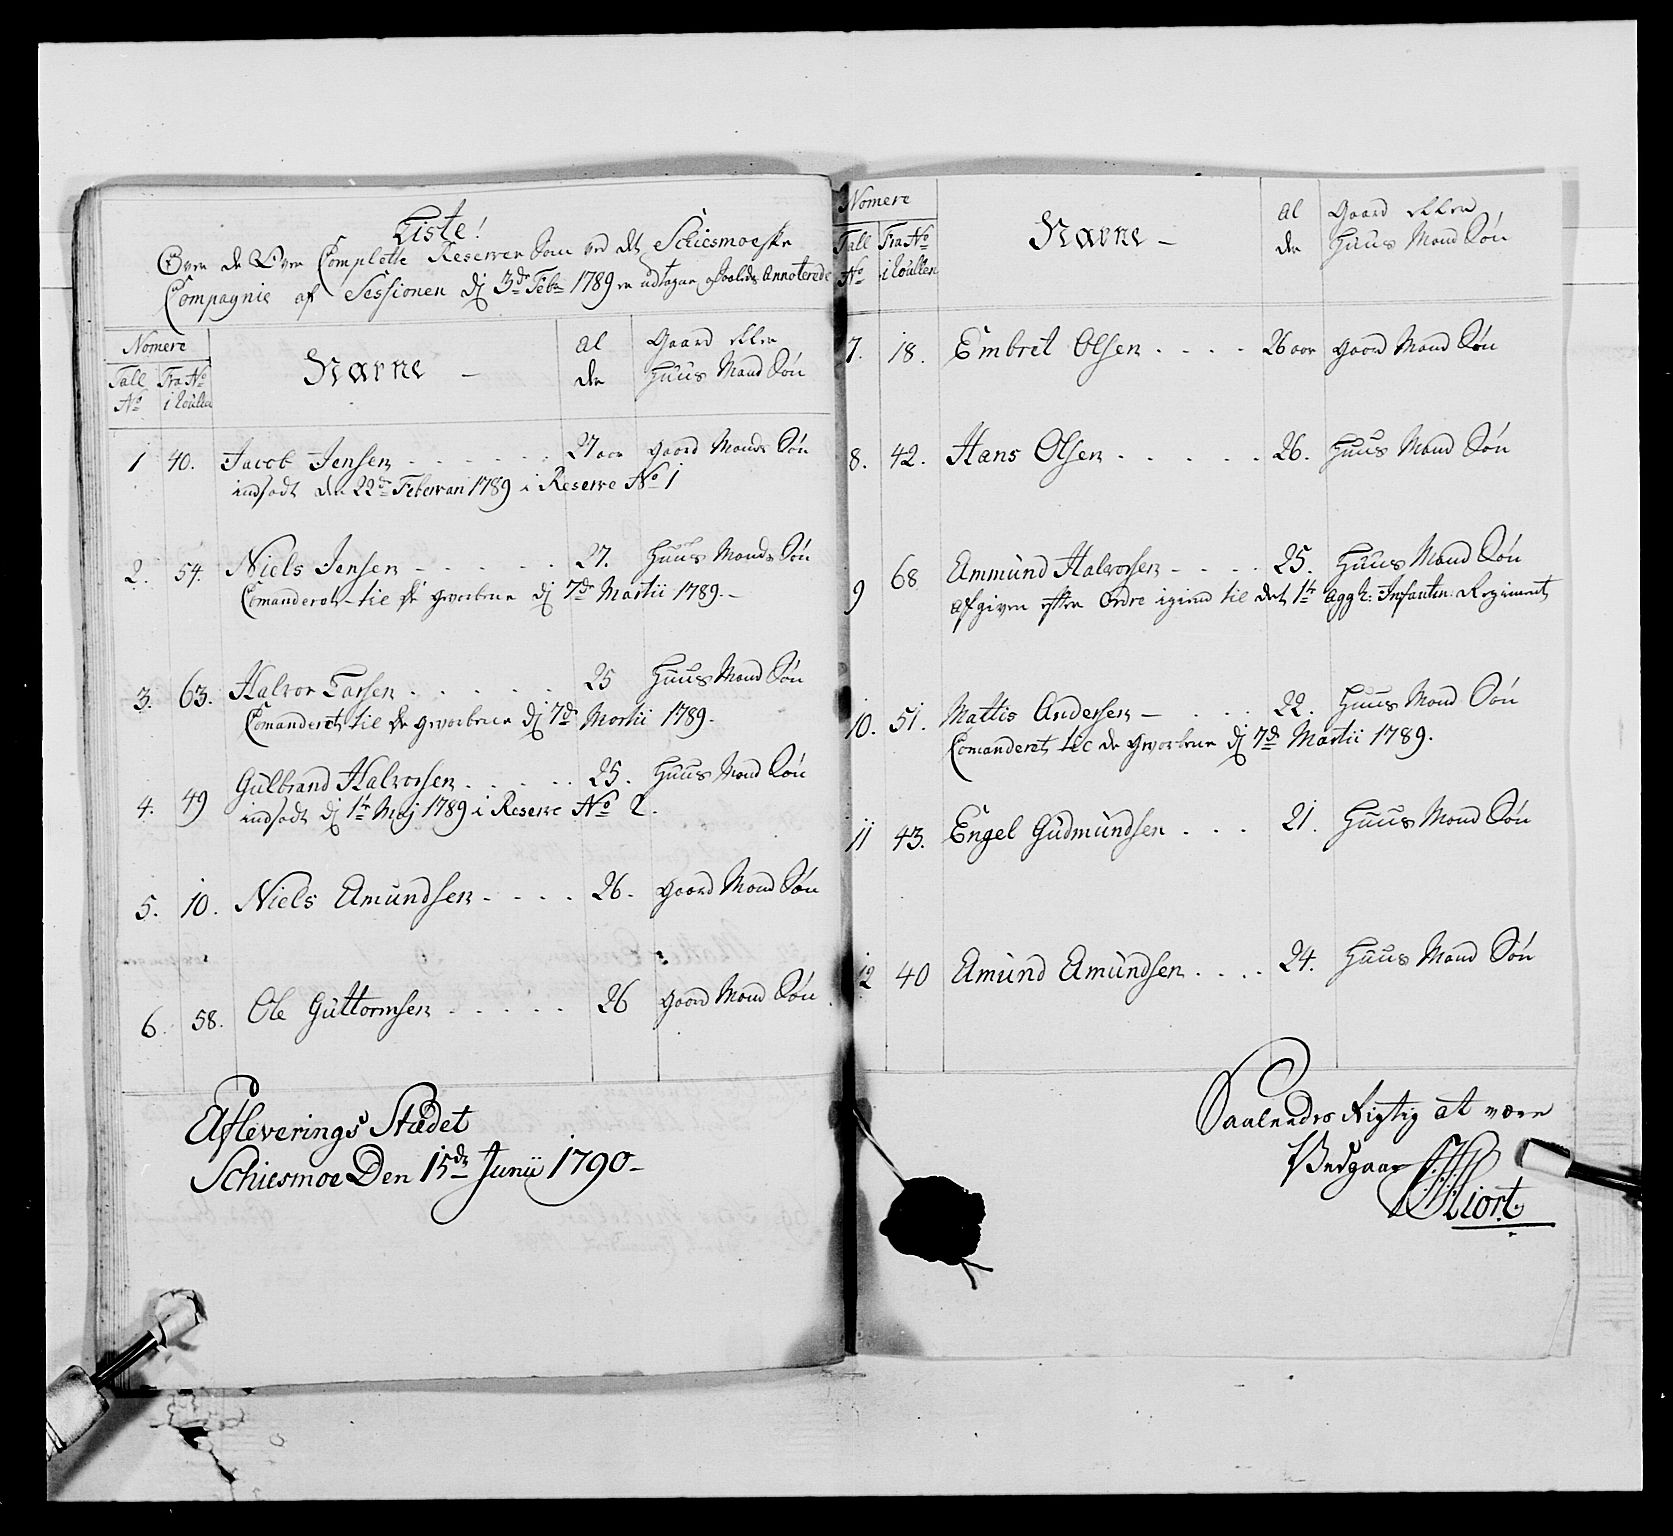 Liste!
Over de Over Complette Reserver Som ved det Schiesmoeske
Compagnie af Sessionen dj 3de Febr 1789 er udtagne Annoterede
Nomere
Tall No
Fra No i Roullen
Navne
Al der
Gaard eller Huus Mand Søn
1 40. Jacob Jensen . . . . . . 27 aar Gaard Mands Søn
indsadt den 22de Feberuari 1789 i Reserve No 1
2. 54. Niels Jensen . . . . . 27. Huus Mands Søn
Comanderet til de gevorbene dj 7de Martii 1789.
3. 63. Halvor Larsen . . . . . 25 Huus Mand Søn
Comanderet til de gevorbene dj 7de Martii 1789.
4. 49 Gulbrand Halvorsen . . . . . 25. Huus Mand Søn
indsadt dj 1te Maj 1789 i Reserve No 2.
5. 10. Niels Amundsen . . . . 26. Gaard Mand Søn
6. 58. Ole Guttormsen . . . . . 26 Gaard Mand Søn
Afleverings Stædet
Schiesmoe Den 15de Junii 1790
Nomere
Tall No
Fra No i Roullen
Navne
Al der
Gaard eller Huus Mand Søn
7. 18. Embret Olsen . . . . 26 aar Gaard Mand Søn
8. 42. Hans Olsen . . . . . 26. Huus Mand Søn
9 68 Ammund Halvorsen . . . . 25. Huus Mand Søn
afgiven efter Ordre igien til det 1te Aggh: Infanterie: Regiment
10. 51. Mattis Andersen . . . 22. Huus Mand Søn
Comanderet til de gevorbene dj 7de Martii 1789.
11 43. Engel Gudmundsen . . . 21. Huus Mand Søn
12 40 Amund Amundsen . . . . 24. Huus Mand Søn
Saaleedes Rigtig at være
Vedgaar
Hiort